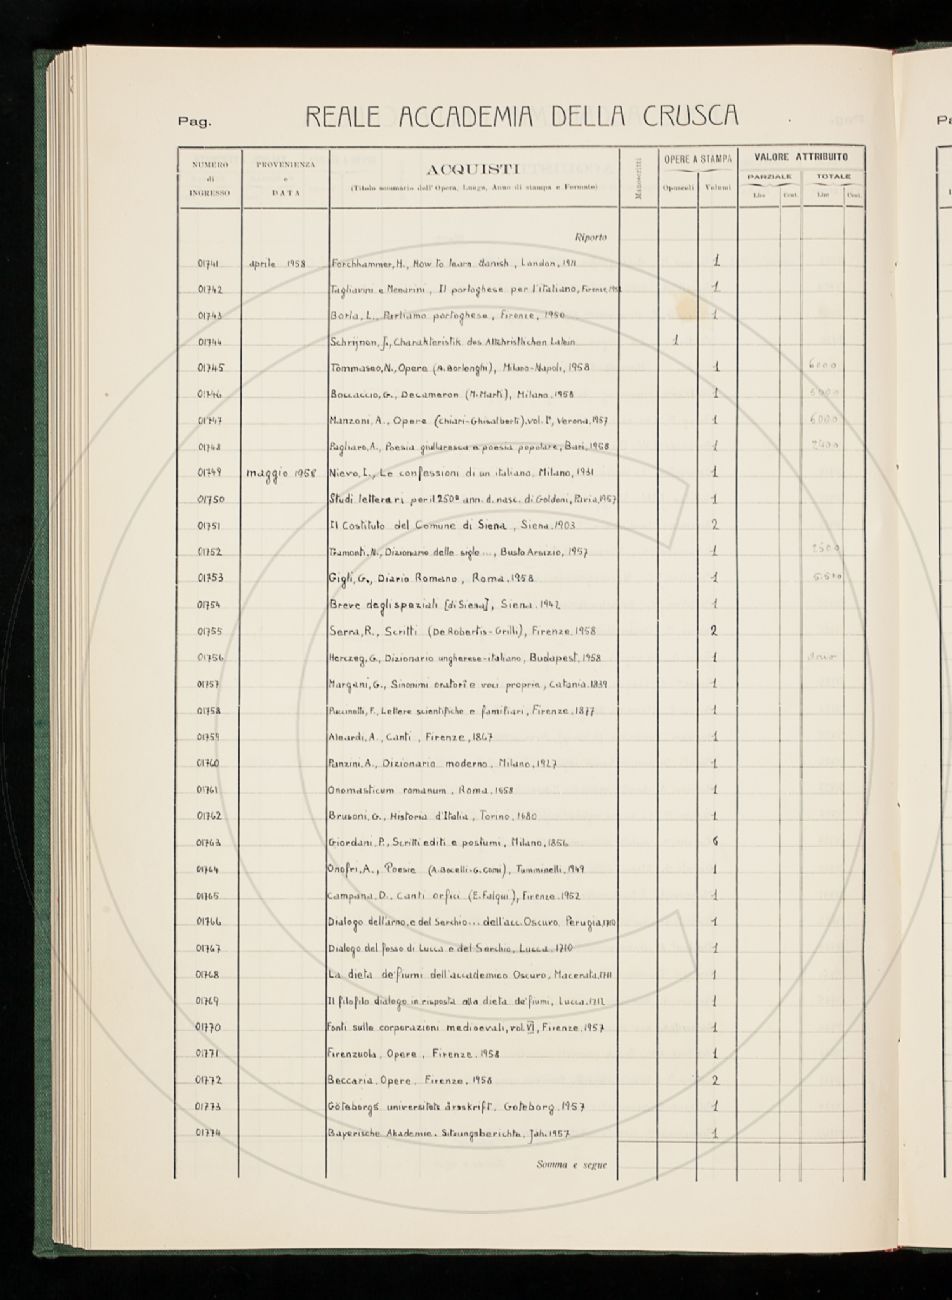 Pag. REALE ACCADEMIA DELLA CRUSCA
NUMERO di INGRESSO PROVENIENZA e DATA ACQUISTI (Titolo sommario dell'Opera, Luogo, Anno di stampa e Formato) Manoscritti OPERE A STAMPA Opuscoli Volumi VALORE ATTRIBUITO PARZIALE Lire Cent. TOTALE Lire Cent.
Riporto
01741 aprile 1958 Forchhammer, H., How to learn danish, London, 1911 1
01742 Tagliavini e Menarini, Il portoghese per l'italiano, Firenze, 1
01743 Borla, L., Parliamo portoghese, Firenze, 1950 1
01744 Schrijnen, J., Charakteristik des Altchristlichen Latein 1
01745 Tommaseo, N., Opere (A. Borlenghi), Milano-Napoli, 1958 1 6000
01746 Boccaccio, G., Decameron (M. Marti), Milano, 1958 1
01747 Manzoni, A., Opere (Chiari-Ghisalberti), vol. I°, Verona, 1957 1 6000
01748 Pagliaro, A., Poesia giullaresca e poesia popolare, Bari, 1958 1 2400
01749 maggio 1958 Nievo, I., Le confessioni di un italiano, Milano, 1931 1
01750 Studi letterari per il 250° ann. d. nasc. di Goldoni, Pavia, 1957 1
01751 Il Costituto del Comune di Siena, Siena, 1903 2
01752 Tramonti, N., Dizionario delle sigle ..., Busto Arsizio, 1957 1 2500
01753 Gigli, G., Diario Romano, Roma, 1958 1
01754 Breve degli speziali [di Siena], Siena, 1942 1
01755 Serra, R., Scritti (De Robertis-Grilli), Firenze, 1958 2
01756 Herczeg, G., Dizionario ungherese-italiano, Budapest, 1958 1
01757 Margani, G., Sinonimi oratori e voci proprie, Catania, 1839 1
01758 Puccinotti, F., Lettere scientifiche e familiari, Firenze, 1877 1
01759 Aleardi, A., Canti, Firenze, 1867 1
01760 Panzini, A., Dizionario moderno, Milano, 1927 1
01761 Onomasticum romanum, Roma, 1658 1
01762 Brusoni, G., Historia d'Italia, Torino, 1680 1
01763 Giordani, P., Scritti editi e postumi, Milano, 1856 6
01764 Onofri, A., Poesie (A. Bocelli-G. Comi), Tumminelli, 1949 1
01765 Campana, D., Canti orfici (E. Falqui), Firenze, 1952 1
01766 Dialogo dell'arno, e del Serchio ... dell'acc. Oscuro, Perugia, 1710 1
01767 Dialogo del fosso di Lucca e del Serchio, Lucca, 1710 1
01768 La dieta de' fiumi dell'accademico Oscuro, Macerata, 1711 1
01769 Il filofilo dialogo in risposta alla dieta de' fiumi, Lucca, 1712 1
01770 Fonti sulle corporazioni medioevali, vol. VI, Firenze, 1957 1
01771 Firenzuola, Opere, Firenze, 1958 1
01772 Beccaria, Opere, Firenze, 1958 2
01773 Göteborgs universitets årsskrift, Goteborg, 1957 1
01774 Bayerische Akademie. Sitzungsberichte, Jah. 1957 1
Somma e segue